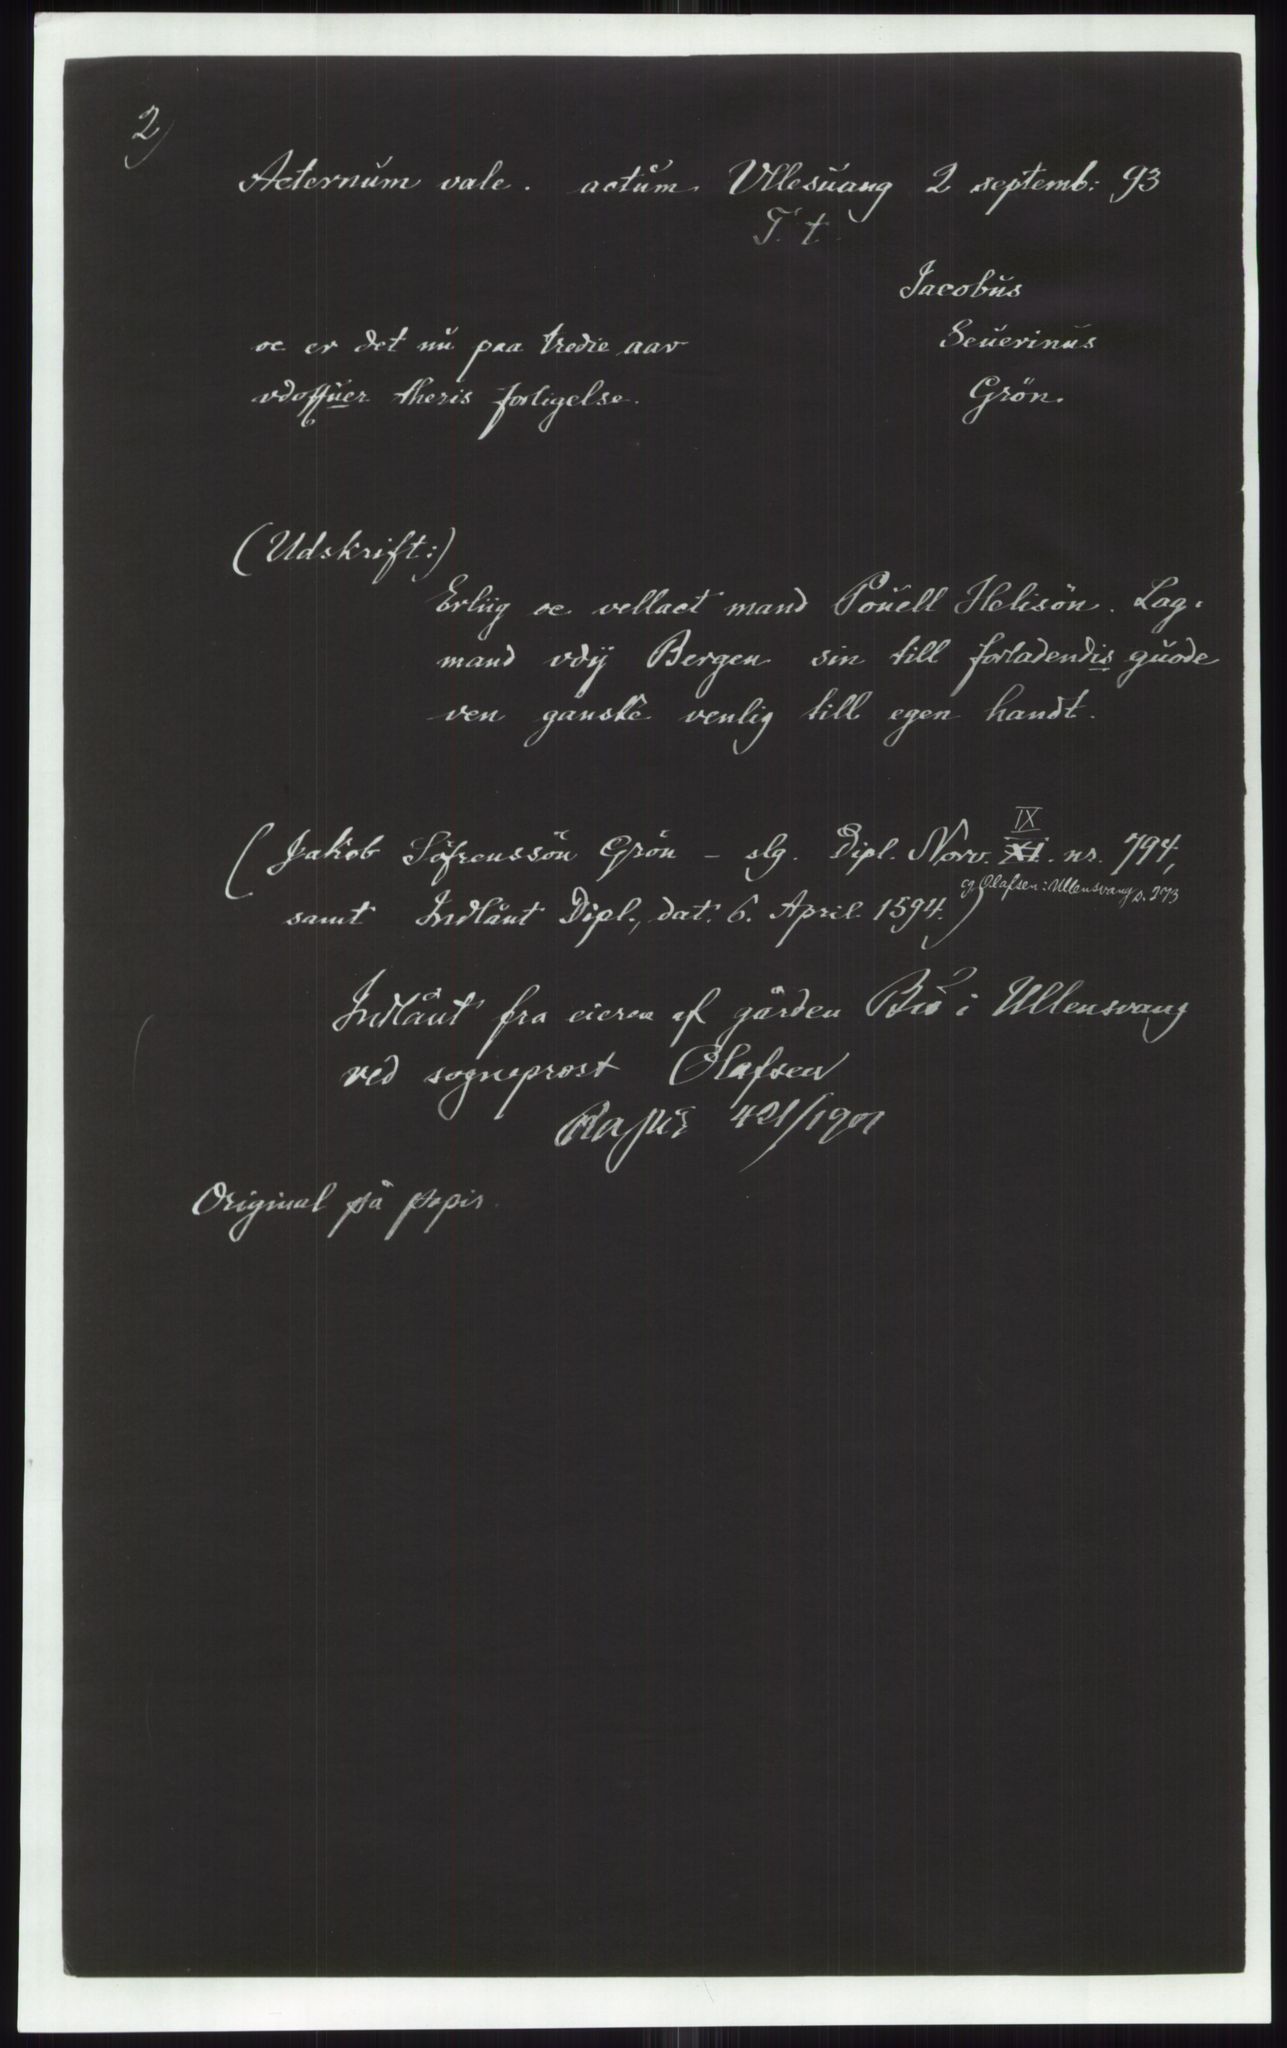 2)
Aeternum vale. actum Vllesuang 2 septemb: 93
T. t.
Jacobus
oc er det nu paa tredie aar
Seuerinus
vdoffuer theris forligelse.
Grön.
(Udskrift:)
Erliig oc vellact mand Pouell Helisön. Lag-
mand vdij Bergen sin till forladendis guode
ven ganske venlig till egen handt.
IX
(Jakob Söfrenssön Grön – slg. Dipl. Norv. XI. nr. 794,
cg Olafsen: Ullensvang s. 273
samt Indlånt Dipl., dat. 6. April 1594.)
Indlånt fra eieren af gården Bu i Ullensvang
ved sogneprest Olafsen
421/1901
Original på papir.